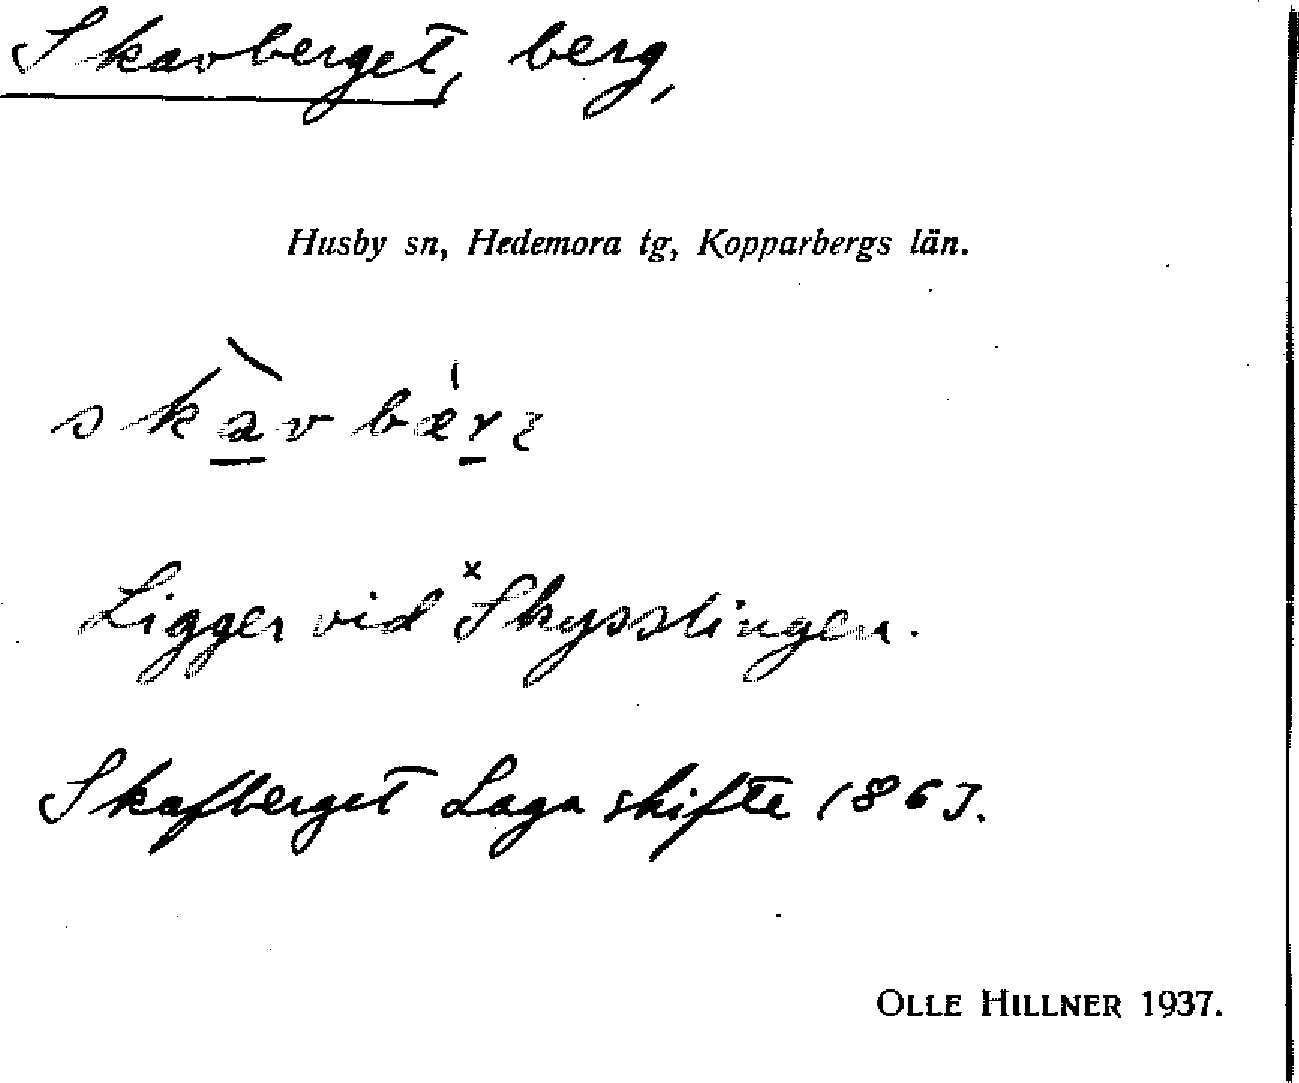 Skavberget, berg,
Husby sn, Hedemora tg, Kopparbergs län.
Ligger vid ˣSkysslingen.
Skafberget Laga skifte 1863.
OLLE HILLNER 1937.